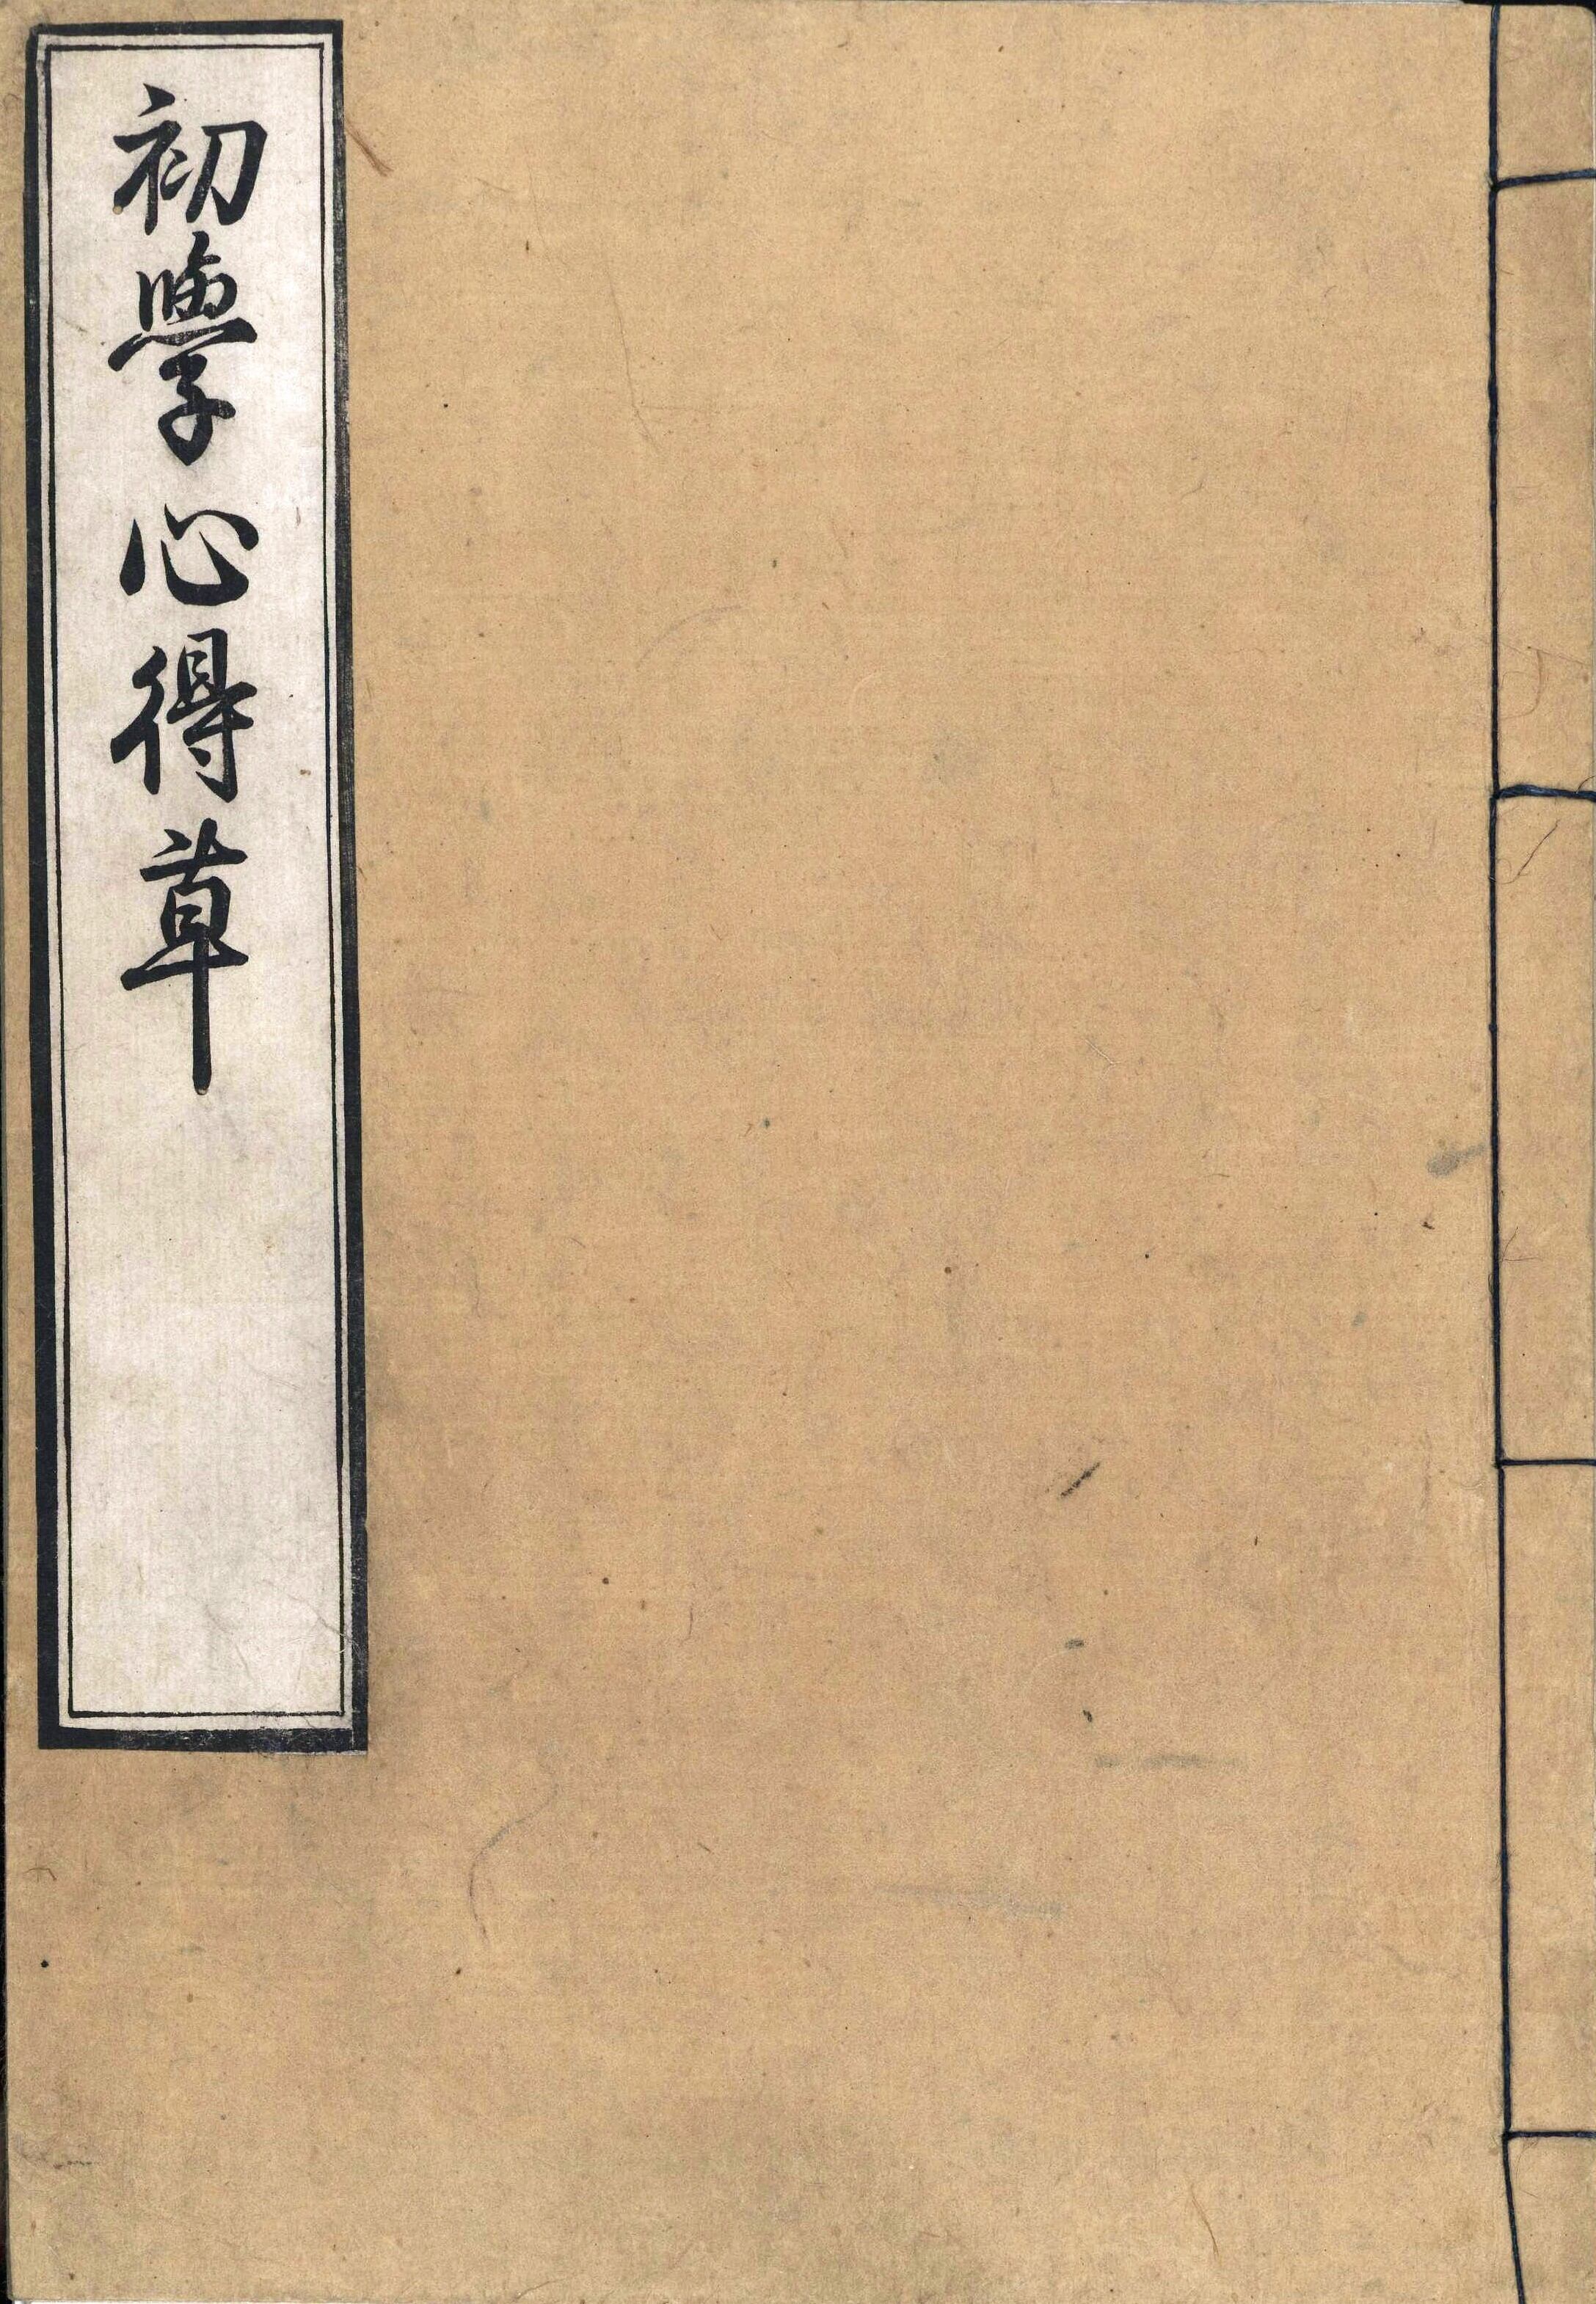 初學心得草